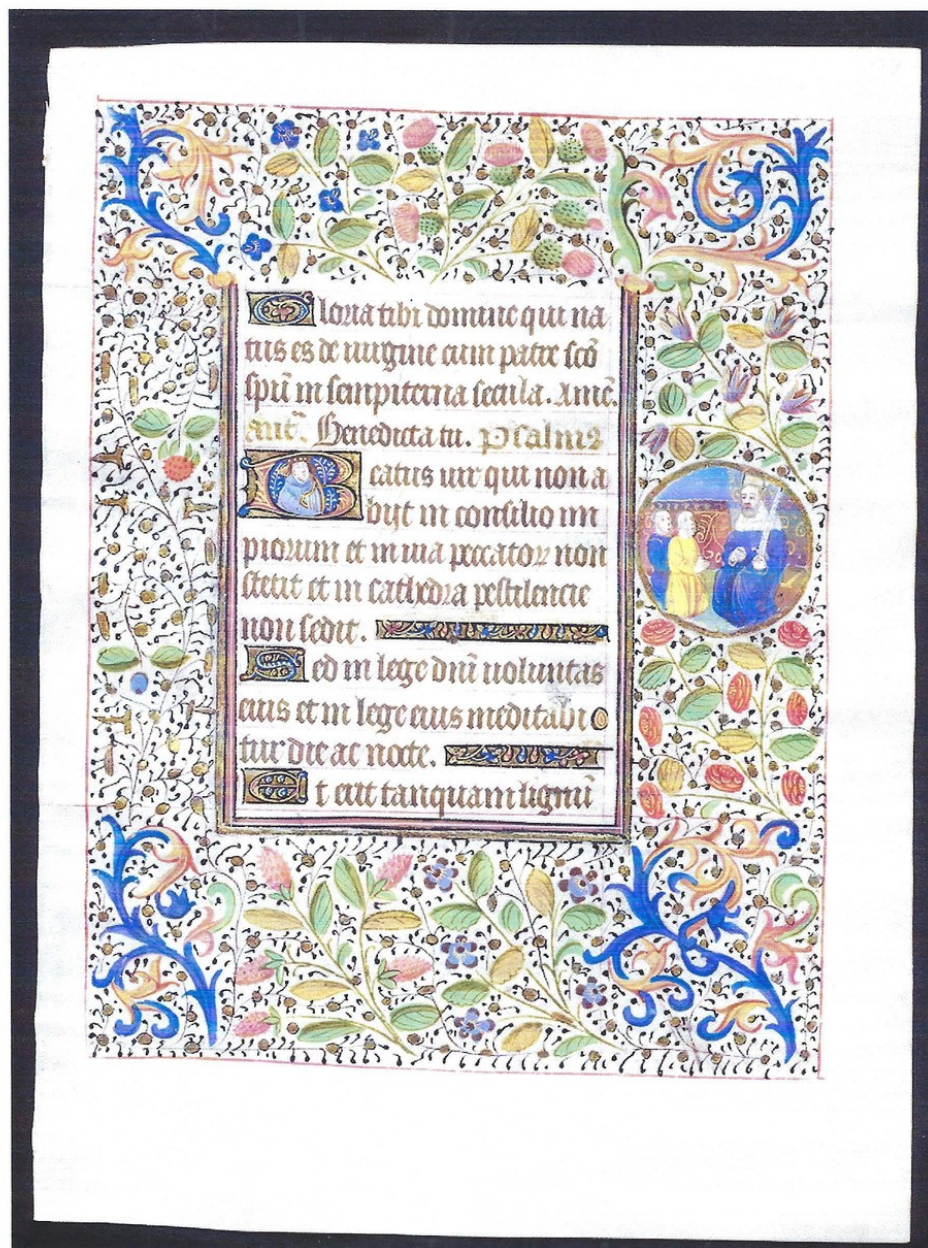 Gloria tibi domine qui na
tus es de uirgine cum patre sc̄o
sp̄u in sempiterna secula. Amē.
Añt. Benedicta tu. Psalmꝰ
Beatus uir qui non a
bijt in consilio im
piorum et in uia peccatoꝝ non
stetit et in cathedra pestilencie
non sedit.
Sed in lege dn̄i uoluntas
eius et in lege eius meditabi
tur die ac nocte.
Et erit tanquam lignū